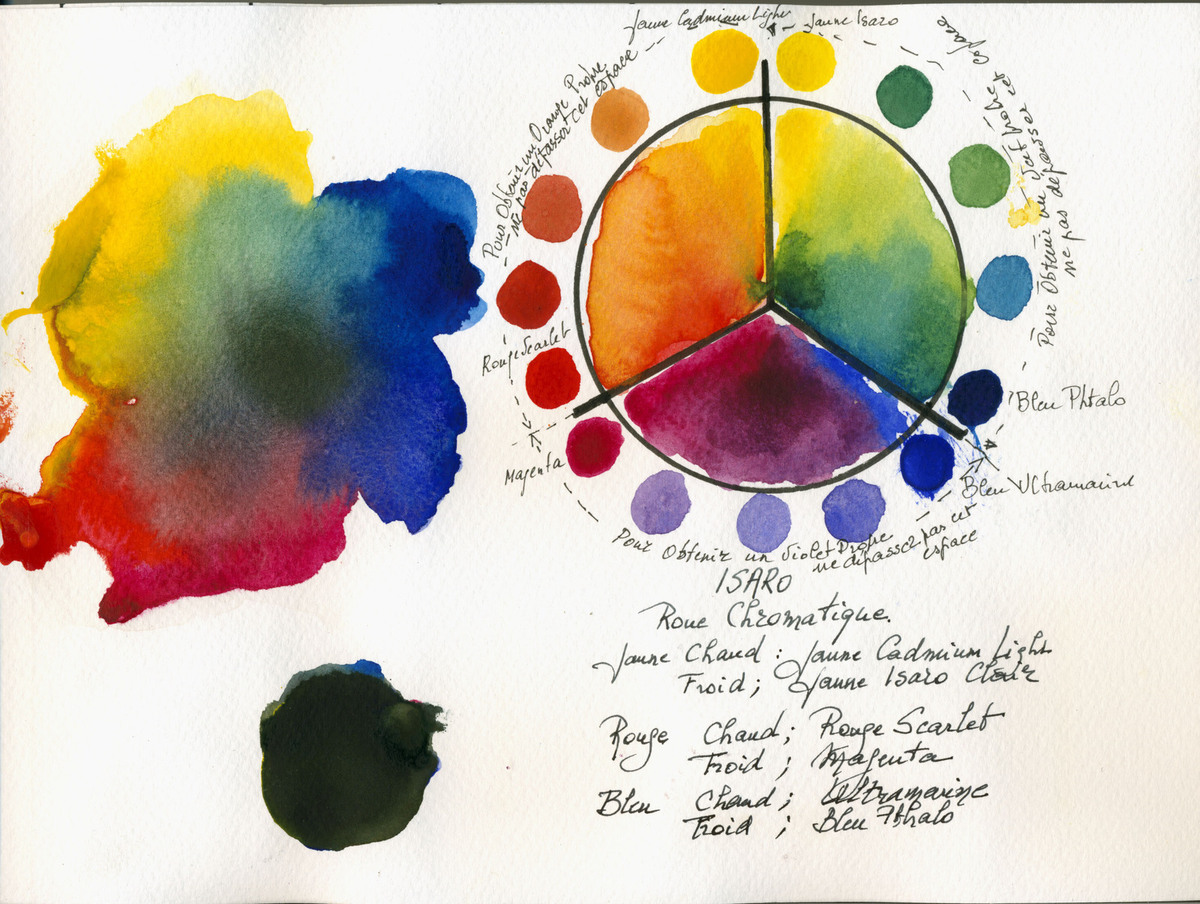 Jaune Cadmium Light
Jaune Isaro
Pour Obtenir un Orange Propre
ne pas dépasser cet espace
Pour Obtenir un Vert Propre
ne pas dépasser cet espace
Rouge Scarlet
Magenta
Bleu Phtalo
Bleu Ultramarine
Pour Obtenir un Violet Propre
ne dépasser pas cet
espace
ISARO
Roue Chromatique.
Jaune Chaud : Jaune Cadmium Light
Froid ; Jaune Isaro Clair
Rouge Chaud ; Rouge Scarlet
Froid ; Magenta
Bleu Chaud ; Ultramarine
Froid ; Bleu Phthalo